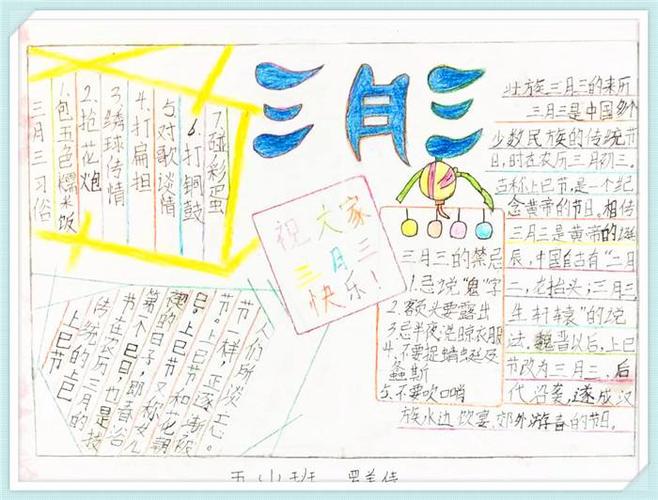 三月三
三月三习俗
1.包五色糯米饭
2.抢花炮
3.绣球传情
4.打扁担
5.对歌谈情
6.打铜鼓
7.碰彩蛋
祝大家
三月三
快乐!
壮族三月三的来历
三月三是中国多个
少数民族的传统节
日,时在农历三月初三。
古称上巳节,是一个纪
念黄帝的节日。相传
三月三是黄帝的诞
辰,中国自古有“二月
二,龙抬头;三月三,
生轩辕”的说
法。魏晋以后,上巳
节改为三月三,后
代沿袭,遂成汉
族水边饮宴、郊外游春的节日。
三月三的禁忌
1.忌说“鬼”字
2.额头要露出
3.忌半夜洗晾衣服
4.不要捉蜻蜓及
螽斯
5.不要吹口哨
上巳节
传统的上巳
节在农历三月的
第一个巳日,也是祓
禊的日子,即春浴
日。上巳节又称女儿
节。上巳节和花朝
节一样,正逐渐被
人们所淡忘。